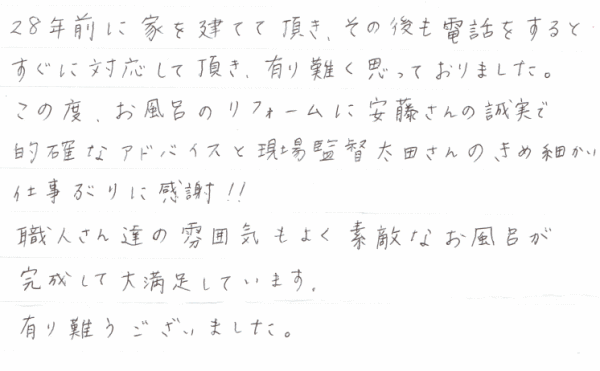 28年前に家を建てて頂き、その後も電話をすると
すぐに対応して頂き、有り難く思っておりました。
この度、お風呂のリフォームに安藤さんの誠実で
的確なアドバイスと現場監督太田さんのきめ細かい
仕事ぶりに感謝!!
職人さん達の雰囲気もよく素敵なお風呂が
完成して大満足しています。
有り難うございました。